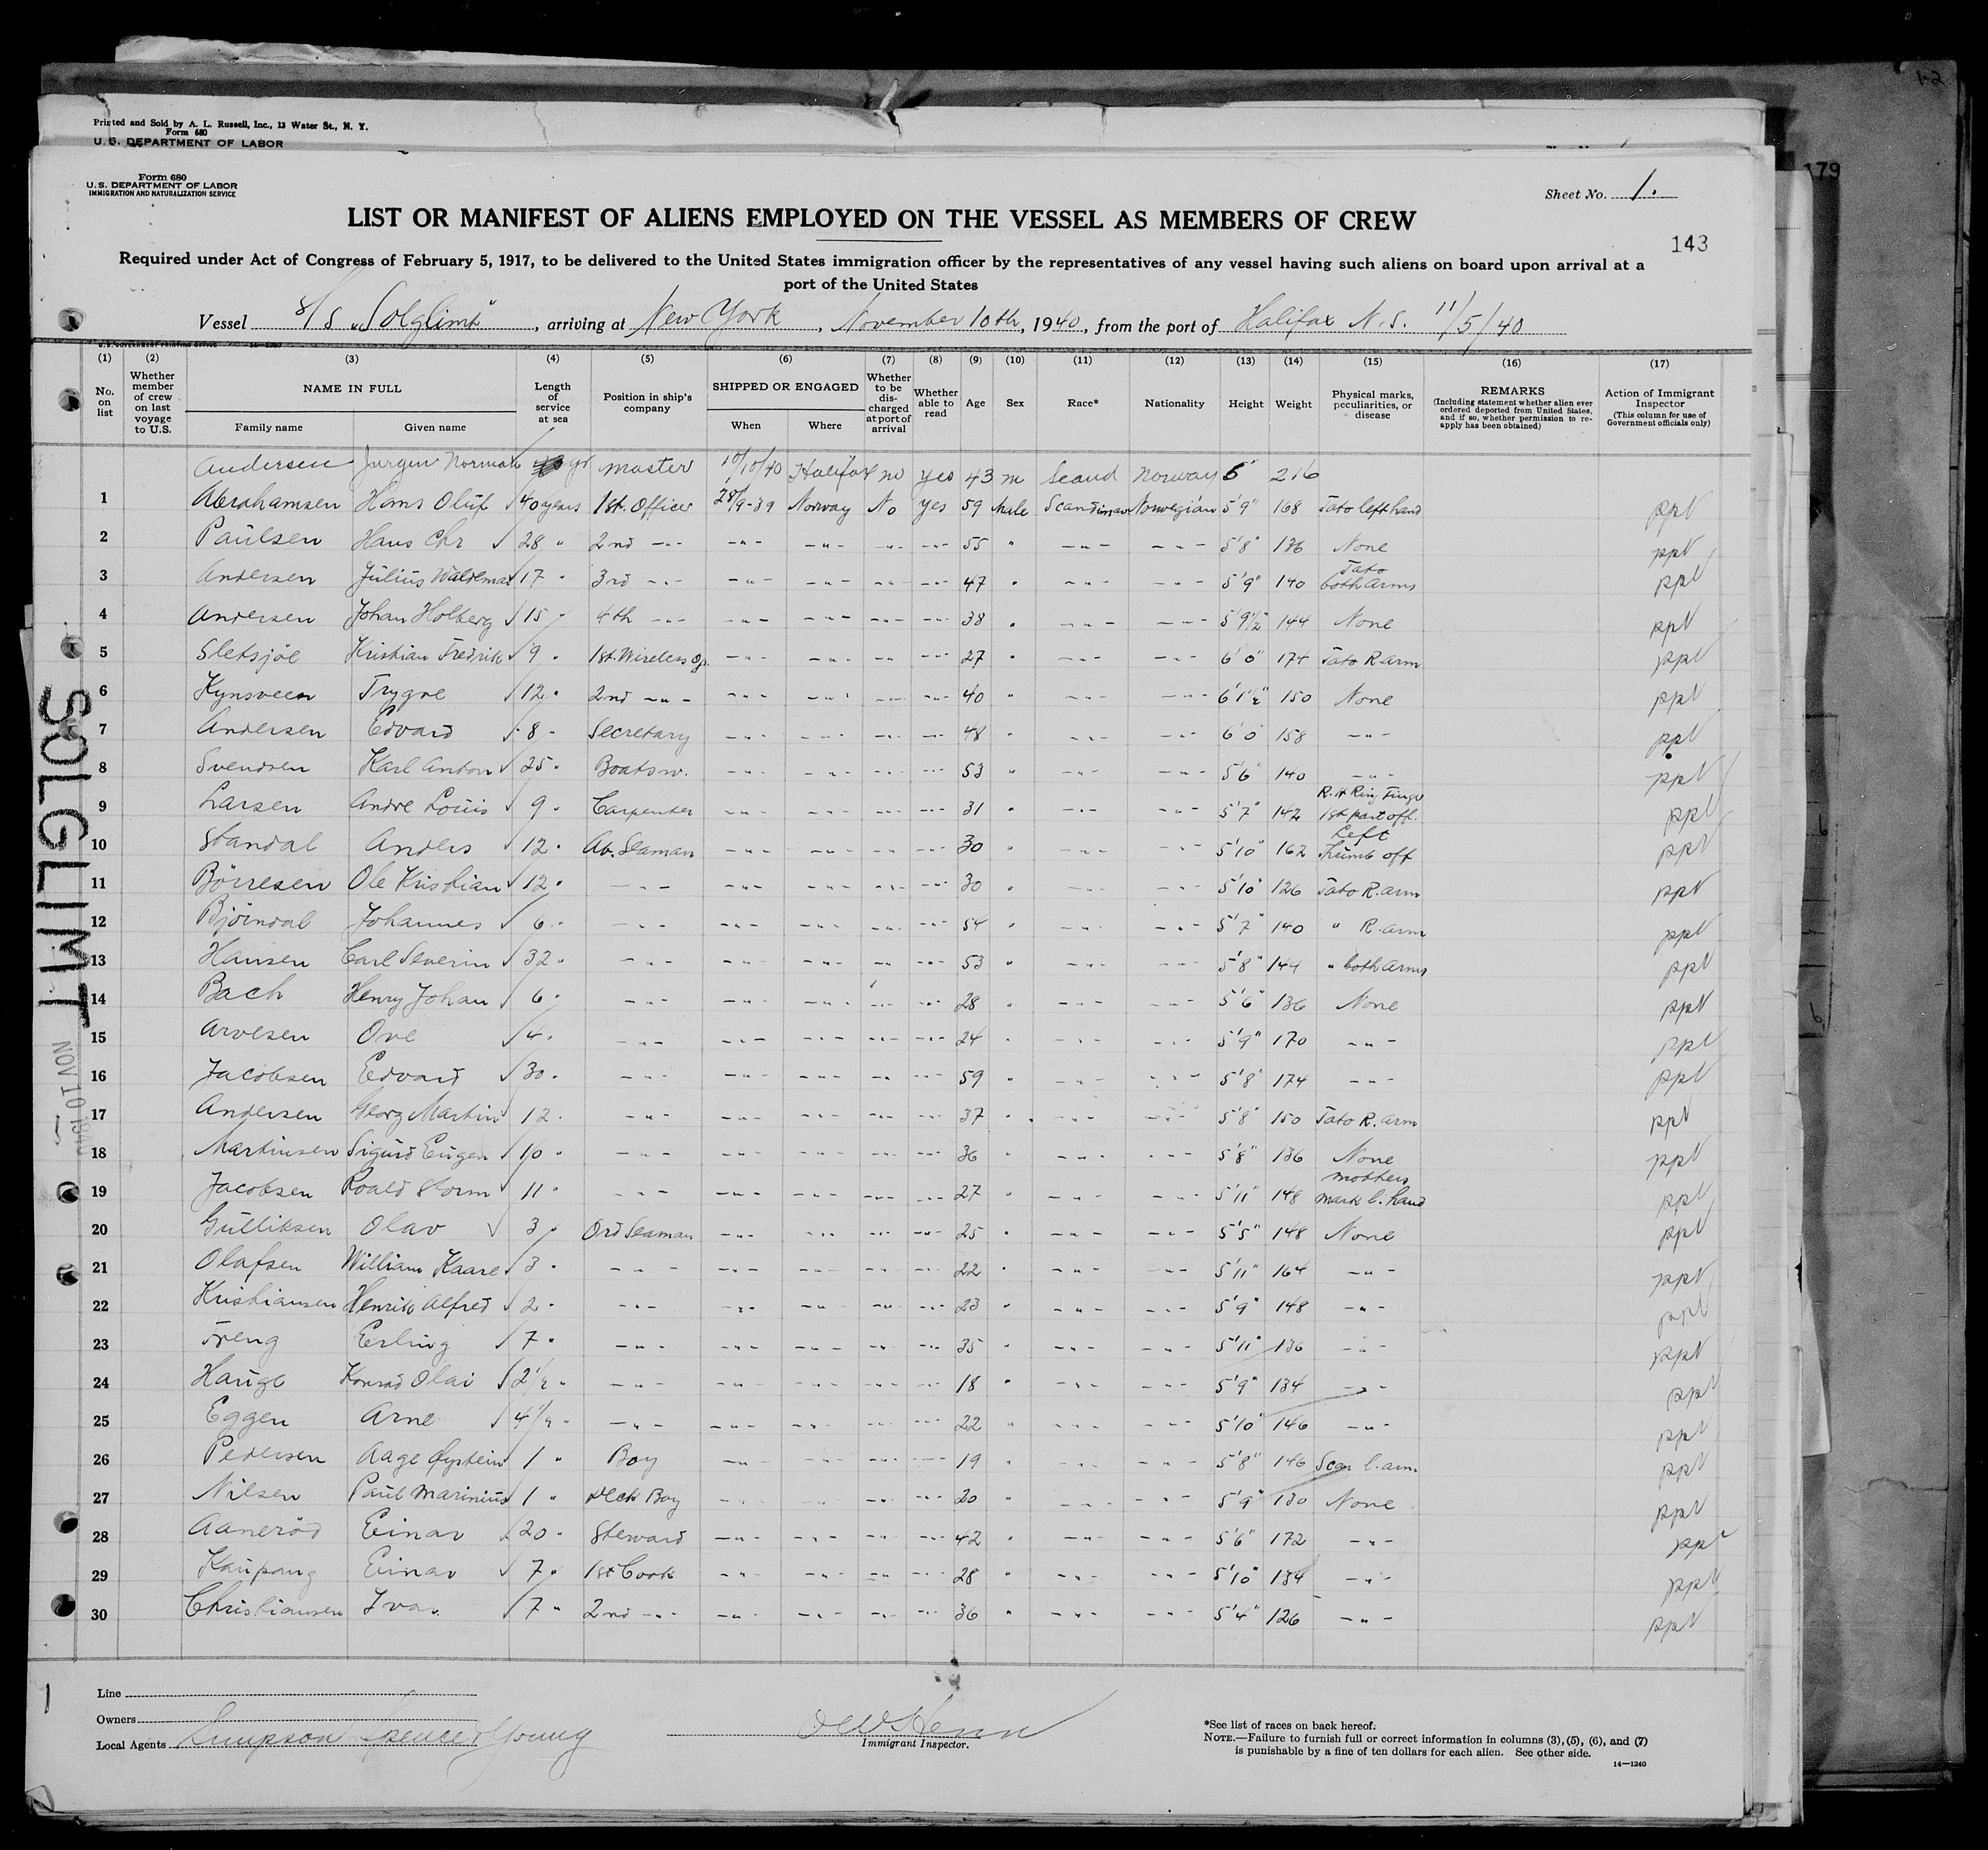 1-2
Printed and Sold by A. L. Russell, Inc., 13 Water St., N. Y.
Form 680
U. S. DEPARTMENT OF LABOR
179
Form 680
U. S. DEPARTMENT OF LABOR
IMMIGRATION AND NATURALIZATION SERVICE
Sheet No. 1.
LIST OR MANIFEST OF ALIENS EMPLOYED ON THE VESSEL AS MEMBERS OF CREW
143
Required under Act of Congress of February 5, 1917, to be delivered to the United States immigration officer by the representatives of any vessel having such aliens on board upon arrival at a
port of the United States
Vessel S/S "Solglimt", arriving at New York, November 10th, 1940, from the port of Halifax N.S. 11/5/40
(1) (2) (3) (4) (5) (6) (7) (8) (9) (10) (11) (12) (13) (14) (15) (16) (17)
No. on list
Whether member of crew on last voyage to U.S.
NAME IN FULL
Family name
Given name
Length of service at sea
Position in ship's company
SHIPPED OR ENGAGED
When
Where
Whether to be discharged at port of arrival
Whether able to read
Age
Sex
Race*
Nationality
Height
Weight
Physical marks, peculiarities, or disease
REMARKS
(Including statement whether alien ever ordered deported from United States, and if so, whether permission to reapply has been obtained)
Action of Immigrant Inspector
(This column for use of Government officials only)
Andersen Jurgen Norman yr master 10/10/40 Halifax no yes 43 m Scand Norway 216
1 Abrahamsen Hans Oluf √ 40 years 1st. Officer 28/9-39 Norway No yes 59 Male Scandinav Norwegian 5'9" 168 Tato left hand ppV
2 Paulsen Hans Chr √ 28 " 2nd -"- -"- -"- -"- -"- 55 " -"- -"- 5'8" 136 None ppV
3 Andersen Julius Waldemar √ 17 " 3rd -"- -"- -"- -"- -"- 47 " -"- -"- 5'9" 140 Tato both Arms ppV
4 Andersen Johan Holberg √ 15 " 4th -"- -"- -"- -"- -"- 38 " -"- -"- 5'9½" 144 None ppV
5 Sletsjöe Kristian Fredrik √ 9 " 1st. Wireless Op. -"- -"- -"- -"- 27 " -"- -"- 6'0" 174 Tato R arm ppV
6 Kynsveen Trygve √ 12 " 2nd -"- -"- -"- -"- -"- 40 " -"- -"- 6'1½" 150 None ppV
7 Andersen Edvard √ 8 " Secretary -"- -"- -"- -"- 48 " -"- -"- 6'0 158 -"- ppV
8 Svendsen Karl Anton √ 25 " Boatsw. -"- -"- -"- -"- 53 " -"- -"- 5'6" 140 -"- ppV
9 Larsen Andre Louis √ 9 " Carpenter -"- -"- -"- -"- 31 " -"- -"- 5'7" 142 R.H Ring Finger 1st part off. ppV
10 Standal Anders √ 12 " Ab. Seaman -"- -"- -"- -"- 30 " -"- -"- 5'10" 162 Left Thumb off ppV
11 Börresen Ole Kristian √ 12 " -"- -"- -"- -"- -"- 30 " -"- -"- 5'10" 126 Tato R. arm ppV
12 Björndal Johannes √ 6 " -"- -"- -"- -"- -"- 54 " -"- -"- 5'7" 140 " R. arm ppV
13 Hansen Carl Severin √ 32 " -"- -"- -"- -"- -"- 53 " -"- -"- 5'8" 144 " both Arms ppV
14 Bach Henry Johan √ 6 " -"- -"- -"- -"- -"- 28 " -"- -"- 5'6" 136 None ppV
15 Arvesen Ove √ 4 " -"- -"- -"- -"- -"- 24 " -"- -"- 5'9" 170 -"- ppV
16 Jacobsen Edvard √ 30 " -"- -"- -"- -"- -"- 59 " -"- -"- 5'8" 174 -"- ppV
17 Andersen Georg Martin √ 12 " -"- -"- -"- -"- -"- 37 " -"- -"- 5'8" 150 Tato R. arm ppV
18 Martinsen Sigurd Eugen √ 10 " -"- -"- -"- -"- -"- 36 " -"- -"- 5'8" 136 None ppV
19 Jacobsen Roald Storm √ 11 " -"- -"- -"- -"- -"- 27 " -"- -"- 5'11" 148 mothers mark l. hand ppV
20 Gulliksen Olav √ 3 " Ord Seaman -"- -"- -"- -"- 25 " -"- -"- 5'5" 148 None ppV
21 Olafsen William Kaare √ 3 " -"- -"- -"- -"- -"- 22 " -"- -"- 5'11" 164 -"- ppV
22 Kristiansen Henrik Alfred √ 2 " -"- -"- -"- -"- -"- 23 " -"- -"- 5'9" 148 -"- ppV
23 Treng Erling √ 7 " -"- -"- -"- -"- -"- 35 " -"- -"- 5'11" 136 -"- ppV
24 Hauge Konrad Olai √ 2½ " -"- -"- -"- -"- -"- 18 " -"- -"- 5'9" 134 -"- ppV
25 Eggen Arne √ 4½ " -"- -"- -"- -"- -"- 22 " -"- -"- 5'10" 146 -"- ppV
26 Pedersen Aage Øystein √ 1 " Boy -"- -"- -"- -"- 19 " -"- -"- 5'8" 146 Scar l. arm. ppV
27 Nilsen Paul Marinius √ 1 " Deck Boy -"- -"- -"- -"- 20 " -"- -"- 5'9" 130 None ppV
28 Aaneröd Einar √ 20 " Steward -"- -"- -"- -"- 42 " -"- -"- 5'6" 172 -"- ppV
29 Kaupang Einar √ 7 " 1st Cook -"- -"- -"- -"- 28 " -"- -"- 5'10" 134 -"- ppV
30 Christiansen Ivar √ 7 " 2nd -"- -"- -"- -"- -"- 36 " -"- -"- 5'4" 126 -"- ppV
SOLGLIMT
NOV 10 1940
Line
Owners
Local Agents Simpson Spence & Young
Immigrant Inspector.
*See list of races on back hereof.
NOTE.—Failure to furnish full or correct information in columns (3), (5), (6), and (7)
is punishable by a fine of ten dollars for each alien. See other side.
14—1240